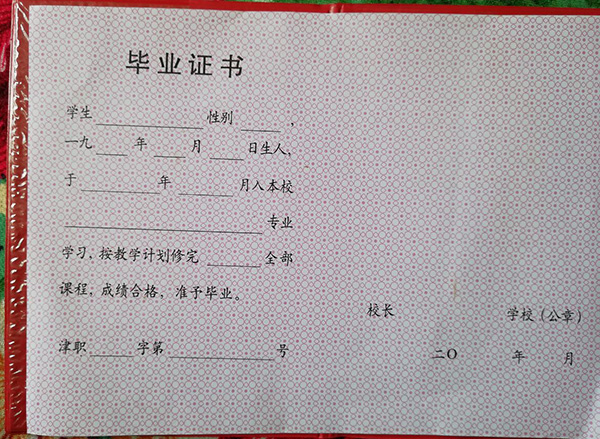 毕业证书
学生__________性别____，
一九___年___月___日生人，
于________年______月入本校
____________________专业
学习，按教学计划修完______全部
课程，成绩合格，准予毕业。
津职____字第__________号
校长 学校（公章）
二〇 年 月